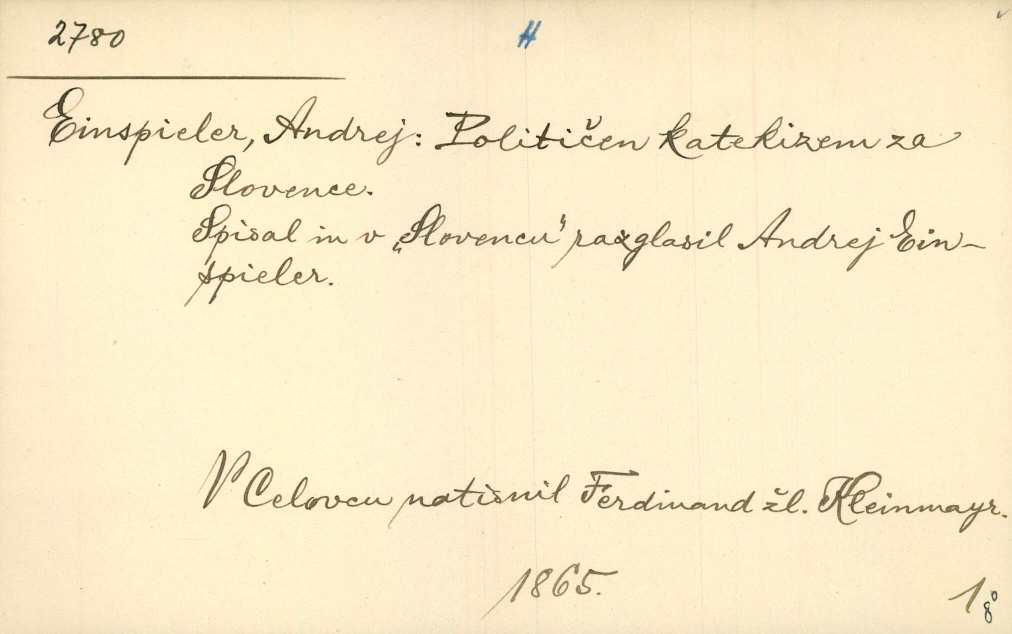 2780
H
Einspieler, Andrej: Političen katekizem za
Slovence.
Spisal in v „Slovencu“ razglasil Andrej Ein-
spieler.
V Celovcu natisnil Ferdinand žl. Kleinmayr.
1865.
1 8°